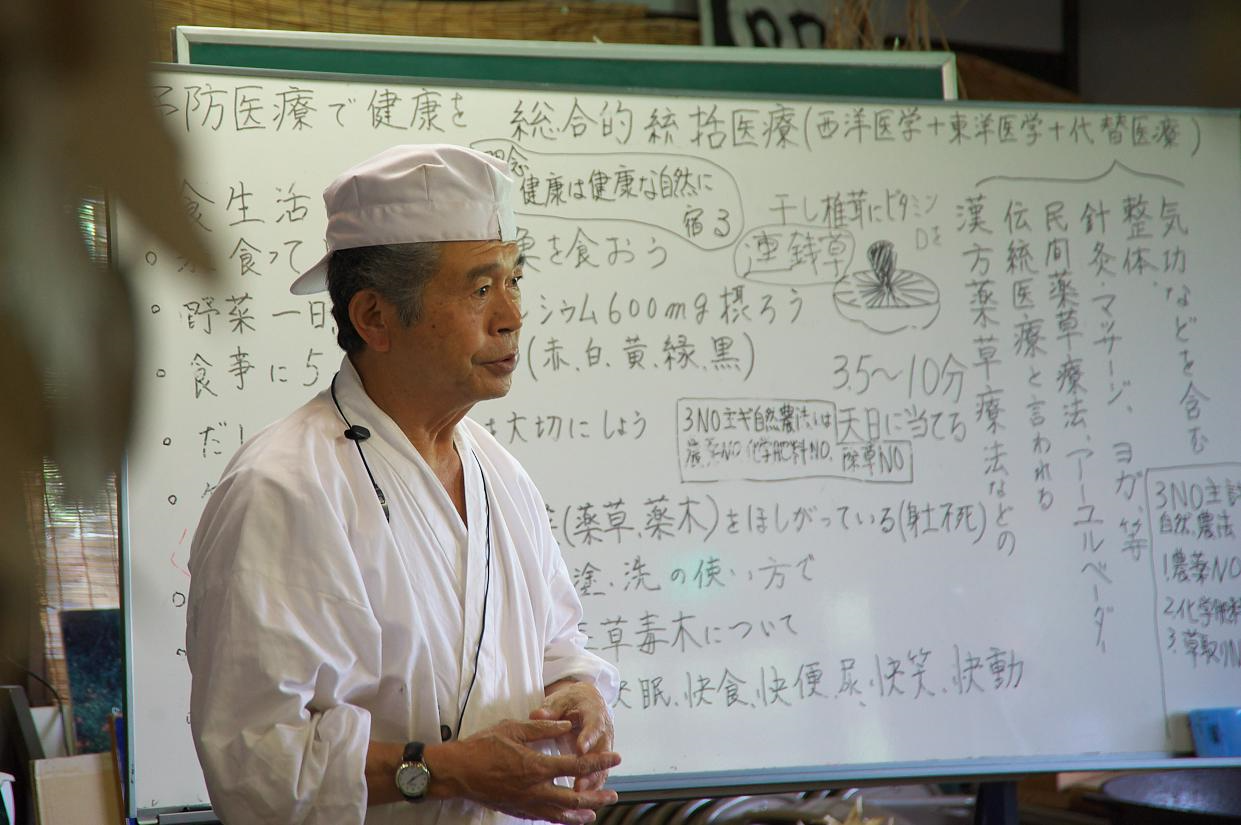 予防医療で健康を 総合的統括医療(西洋医学+東洋医学+代替医療)
健康は健康な自然に
宿る
食生活
食って
魚を食おう
野菜一日
シウム600mg摂ろう
食事に5
(赤、白、黄、縁、黒)
だし
を大切にしよう
(薬草、薬木)をほしがっている(射不死)
塗、洗の使い方で
草毒木について
眠、快食、快便、尿、快笑、快動
干し椎茸にビタミン
Dを
連銭草
3.5〜10分
天日に当てる
3NO主ギ自然農法は
農薬NO化学肥料NO、除草NO
気功などを含む
整体、
針灸・マッサージ、ヨガ、等
民間薬草療法、アーユルベーダー
伝統医療と言われる
漢方薬草療法などの
3NO主
自然農法
1.農薬NO
2.化学肥料
3.草取りN